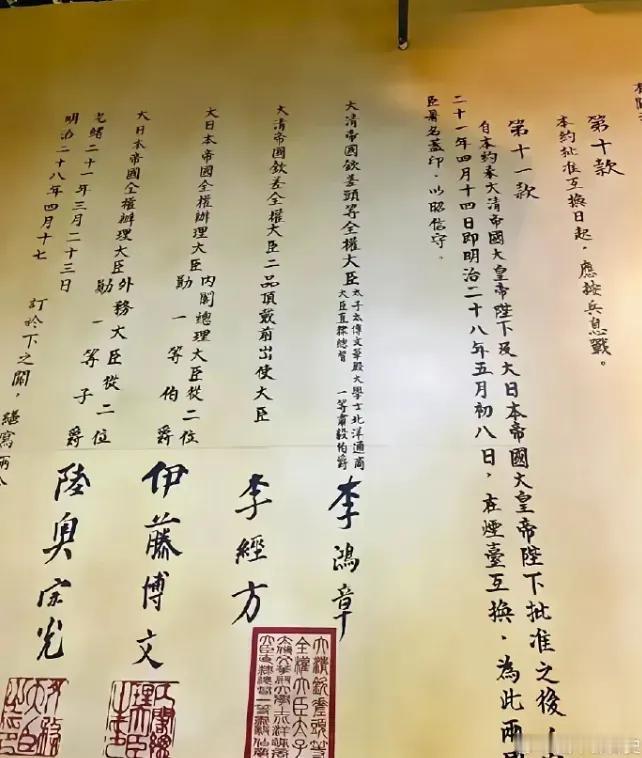 第十款
本約批准互換日起,應按兵息戰。
第十一款
自本約奉大清帝國大皇帝陛下及大日本帝國大皇帝陛下批准之後,
二十一年四月十四日即明治二十八年五月初八日,在煙臺互換。為此兩
臣署名蓋印,以昭信守。
大清帝國欽差頭等全權大臣太子太傅文華殿大學士北洋通商
大臣直隸總督 一等肅毅伯爵
李鴻章
大清帝國欽差全權大臣二品頂戴前出使大臣
李經方
大日本帝國全權辦理大臣內閣總理大臣從二位
勛一等伯爵
伊藤博文
大日本帝國全權辦理大臣外務大臣從二位
勛一等子爵
陸奧宗光
光緒二十一年三月二十三日
明治二十八年四月十七
訂於下之關,繕寫兩
大清欽差頭等
全權大臣太子